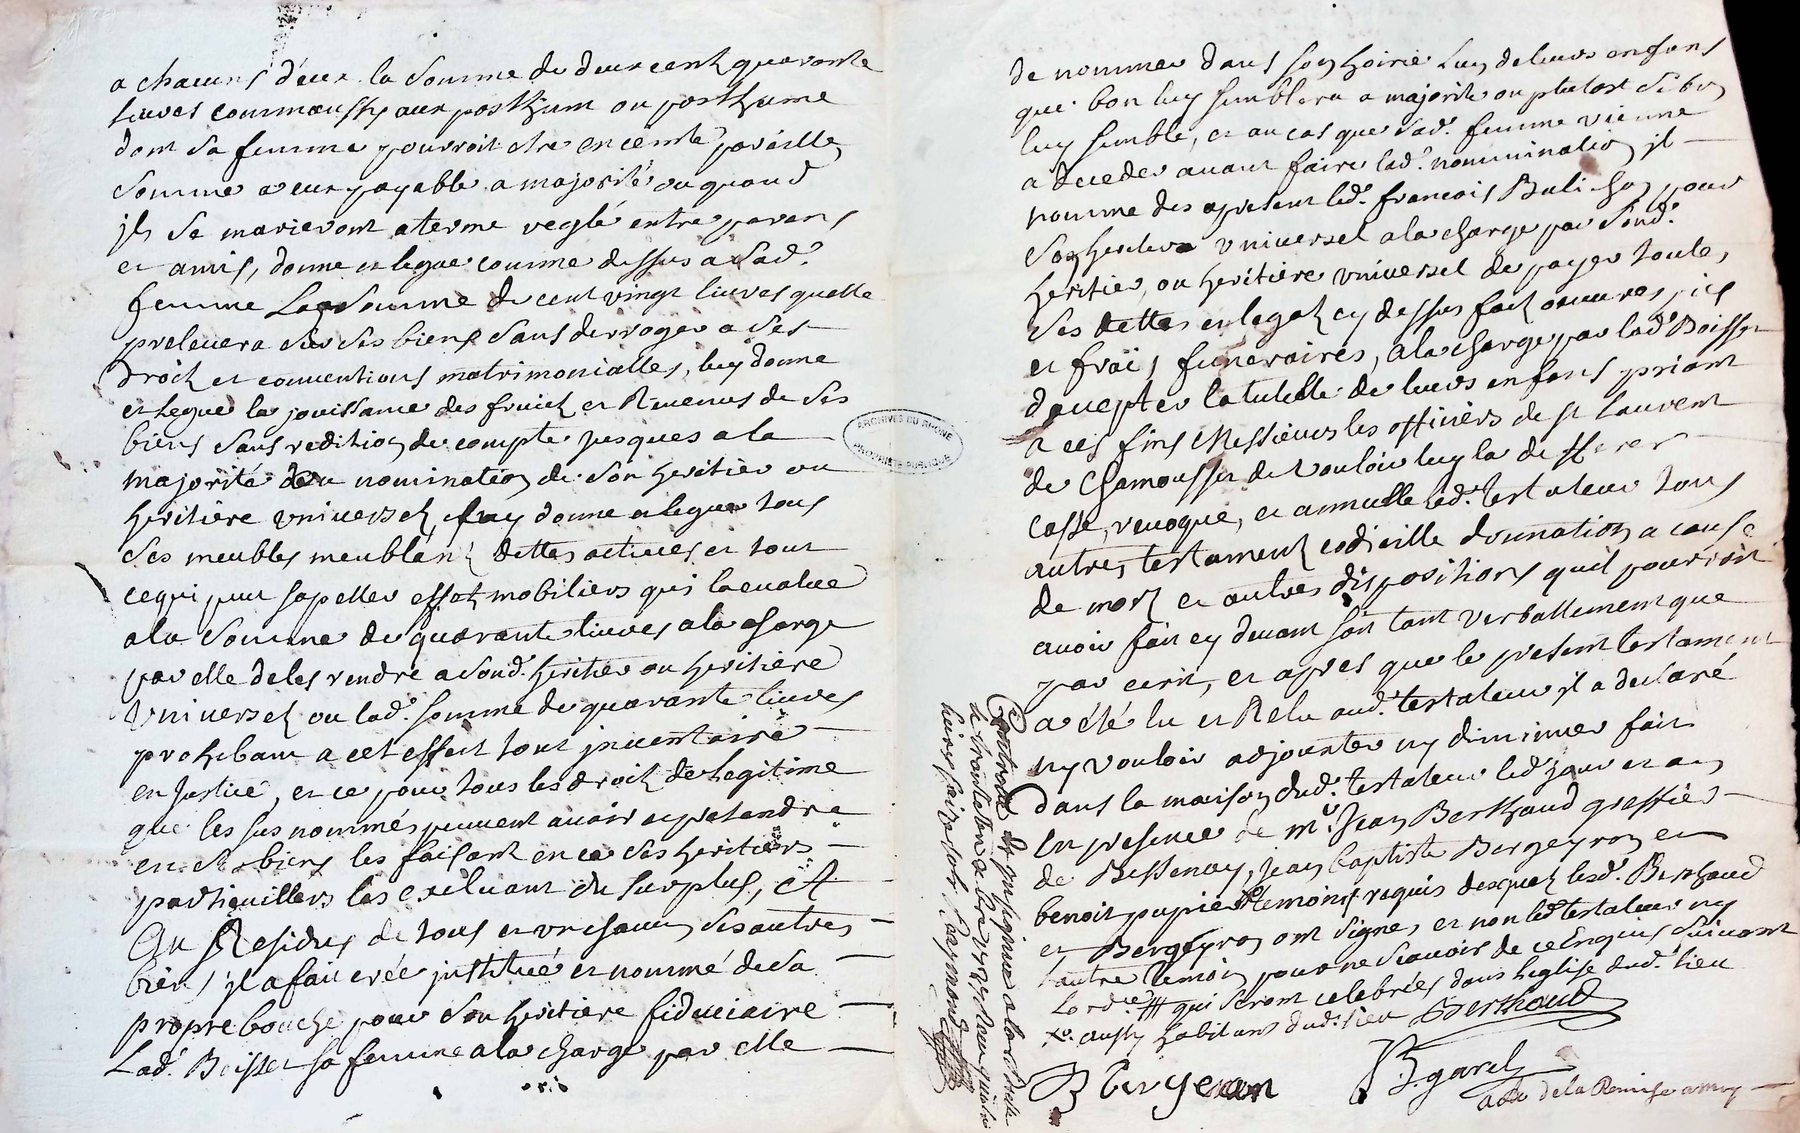 a chacuns d'eux la somme de deux cent quarante
livres comme aussy aux posthum ou posthume
dont sa femme pourroit etre enceinte pareille
somme a eux payable a majorité ou quand
ils se marieront a terme reglé entre parans
et amis, donne et legue comme dessus a sad.
femme la somme de cent vingt livres quelle
prelevera sur ses biens sans derroger a ses
droit et conventions matrimonialles, luy donne
et legue la jouissance des fruict et Revenus de ses
biens sans redition de compte jusques a la
majorité ou nomination de son heritier ou
heritiere universel, luy donne et legue tous
ses meubles meublant dettes actives et tout
ce qui peut sapeller effet mobiliers qui la evalue
a la somme de quarante livres a la charge
par elle de les rendre a sond. heritier ou heritiere
universel ou lad. somme de quarante livres
prohibant a cet effect tout inventaire
en justice, et ce pour tous les droit de legitime
que les sus nommés peuvent avoir et pretendre
en ses biens les faisant en ce ses heritiers
particuilliers les excluant du surplus, Et
Au Residus de tous et un chacun ses autres
biens il a fait créé institué et nommé de sa
propre bouche pour son heritiere fiduciaire
Lad. Boisset sa femme a la charge par elle
ARCHIVES DU RHONE
PROPRIÉTÉ PUBLIQUE
de nommer dans son hoirie l'un de leurs enfans
que bon luy semblera a majorité ou plutost si bon
luy semble, et au cas que sad. femme vienne
a deceder avant faire lad. nomination il
nomme des apresent led. francois Balichon pour
son heritier universel a la charge par sond.
heritier, ou heritiere universel de payer toute,
ses dettes et legat cy dessus fait oeuvres pies
et frais funeraires, a la charge par lad. Boisset
d'accepter la tutelle de leurs enfans priant
a ces fins Messieurs les officiers de st Laurent
de Chamousset de vouloir luy la defferer
casse, revoque, et annulle led. testateur tous
autres testament codicille donnation a cause
de mort et autres dispositions quil pourroit
avoir fait cy devant soit tant verballement que
par ecrit, et apres que le present testament
a été lu et Relu aud. testateur il a declaré
ny vouloir adjouter ny diminuer fait
dans la maison dud. testateur led. jour et an
en presence de mr. Jean Berthaud greffier
de Bessenay, Jean Baptiste Bergeyron et
benoit pupier temoins requis desquel lesd. Berthaud
et Bergeyron ont signé, et non led. testateur ny
lautre temoin pour ne scavoir de ce Enquis suivant
Lordce # qui seront celebrées dans leglise dud. lieu
xv. aussy habitans dud. lieu Berthaud
Bergeran
B. garel
acte de la Remise a moy